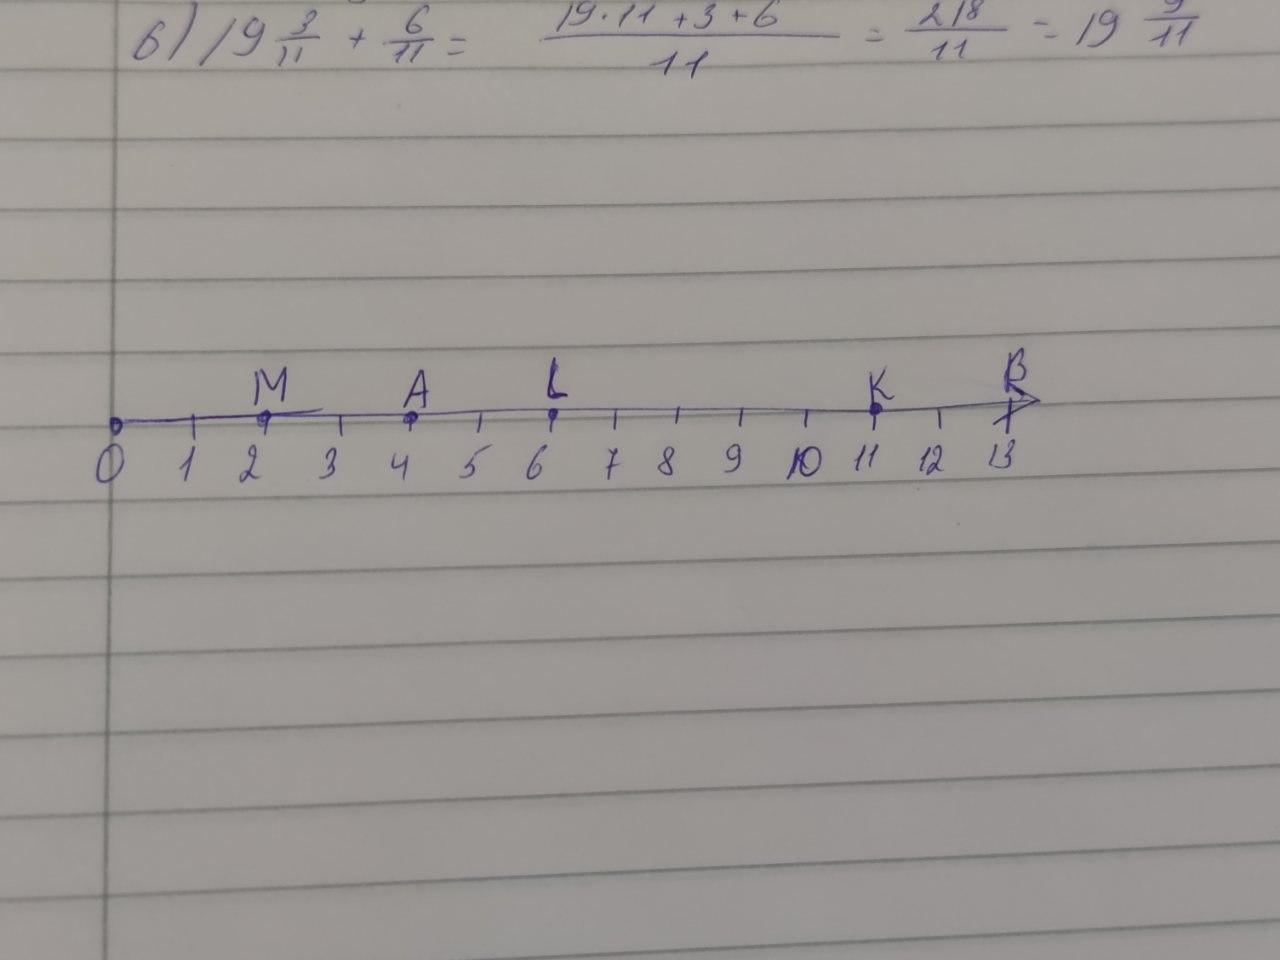 б) 19 3/11 + 6/11 = (19·11+3+6)/11 = 218/11 = 19 9/11
M A L K B
0 1 2 3 4 5 6 7 8 9 10 11 12 13